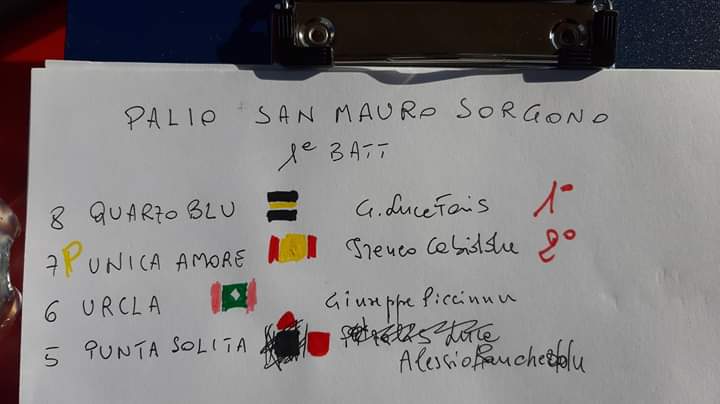 PALIO SAN MAURO SORGONO
1e BATT
8 QUARZO BLU G. Luce Fois 1°
7 PUNICA AMORE Ireneo Cabiddu 2°
6 URCLA Giuseppe Piccinnu
5 PUNTA SOLITA
Alessio